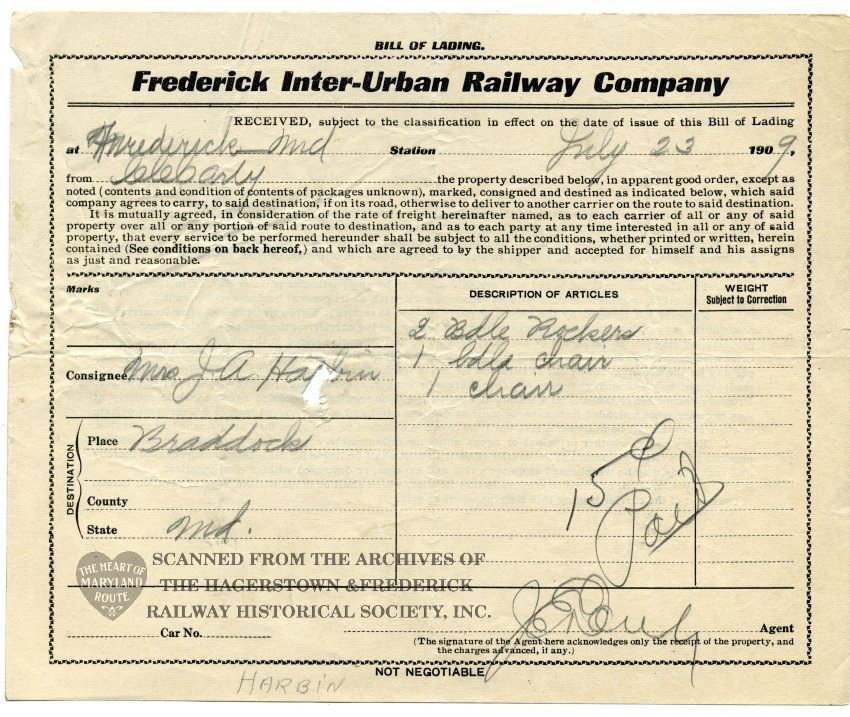 BILL OF LADING.
Frederick Inter-Urban Railway Company
RECEIVED, subject to the classification in effect on the date of issue of this Bill of Lading
at Frederick Md Station July 23 1909,
from the property described below, in apparent good order, except as
noted (contents and condition of contents of packages unknown), marked, consigned and destined as indicated below, which said
company agrees to carry, to said destination, if on its road, otherwise to deliver to another carrier on the route to said destination.
It is mutually agreed, in consideration of the rate of freight hereinafter named, as to each carrier of all or any of said
property over all or any portion of said route to destination, and as to each party at any time interested in all or any of said
property, that every service to be performed hereunder shall be subject to all the conditions, whether printed or written, herein
contained (See conditions on back hereof,) and which are agreed to by the shipper and accepted for himself and his assigns
as just and reasonable.
Marks
DESCRIPTION OF ARTICLES
WEIGHT
Subject to Correction
2 Bdle Rockers
1 bdle chair
1 chair
Consignee Mrs J A Harbin
DESTINATION
Place Braddock
County
State Md.
15 ¢
Paid
THE HEART OF
MARYLAND
ROUTE
SCANNED FROM THE ARCHIVES OF
THE HAGERSTOWN & FREDERICK
RAILWAY HISTORICAL SOCIETY, INC.
Car No.
Agent
(The signature of the Agent here acknowledges only the receipt of the property, and
the charges advanced, if any.)
NOT NEGOTIABLE
HARBIN